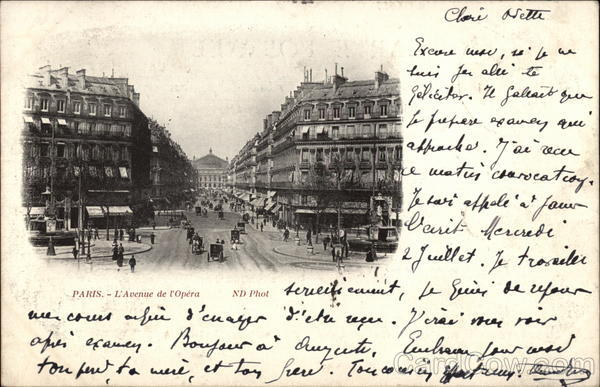 Chère Odette
Excuse moi, si je ne
suis pas allé te
féliciter. Il fallait que
je prépare examen qui
approche. J'ai reçu
ce matin convocation,
Je suis appelé à faire
l'écrit Mercredi
2 Juillet. Je travaille
PARIS. - L'Avenue de l'Opéra ND Phot
sérieusement, je viens de revoir
mes cours afin d'essayer d'être reçu. J'irai vous voir
après examen. Bonjour à Auguste, Embrasse pour moi
ton père, ta mère, et ton frère. Ton cousin
CardCow.com